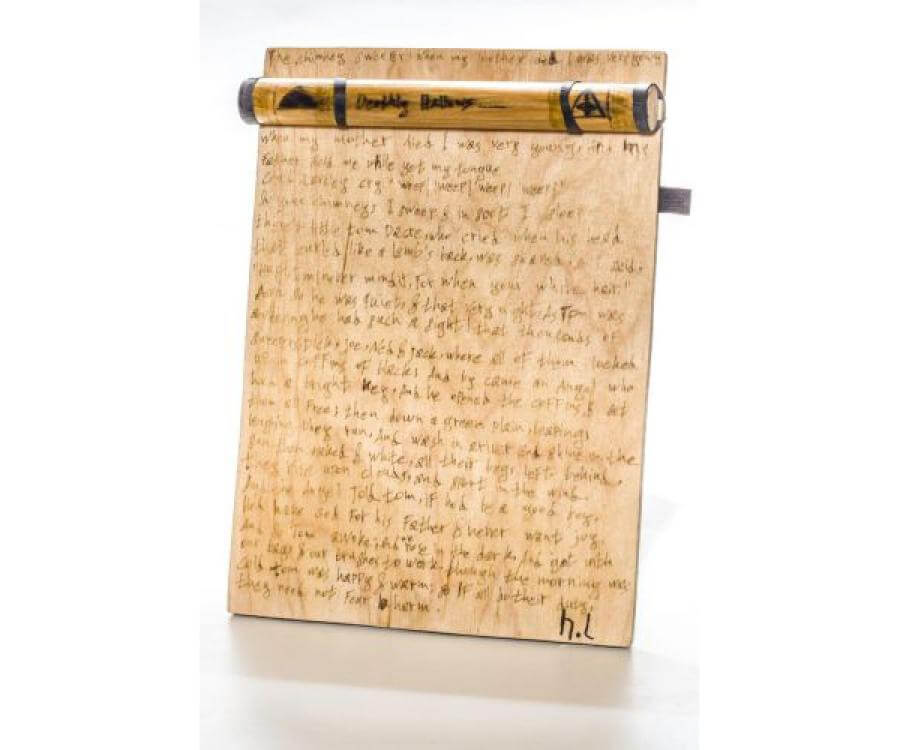 The chimney sweeper when my mother died I was very young
Deathly Hallows
When my mother died I was very young, my
Father sold me while yet my tongue
cry "weep! weep! weep! weep!"
So your chimneys I sweep & in soot I sleep
there's little tom Dacre, who cried when his head
that curled like a lamb's back, was
never mind it, for when your white hair."
And so he was quiet, & that very night, as Tom was
had such a sight! that thousands of
sweepers, Dick, joe, Ned & jack, where all of them locked
up in coffins of blacks And by came an Angel who
had a bright key, And he opened the coffins & set
them all free; then down a green plain, leaping
laughing they run, And wash in a river and shine in the
sun. then naked & white, all their bags left behind,
they rise upon clouds, and sport in the wind.
And the Angel Told tom, if he'd be a good boy,
he'd have God for his Father & never want joy.
And Tom awoke, And rose in the dark, And got with
our bags & our brushes to work. though the morning was
cold tom was happy & warm; so if all do their duty,
they need not fear harm.
h.l